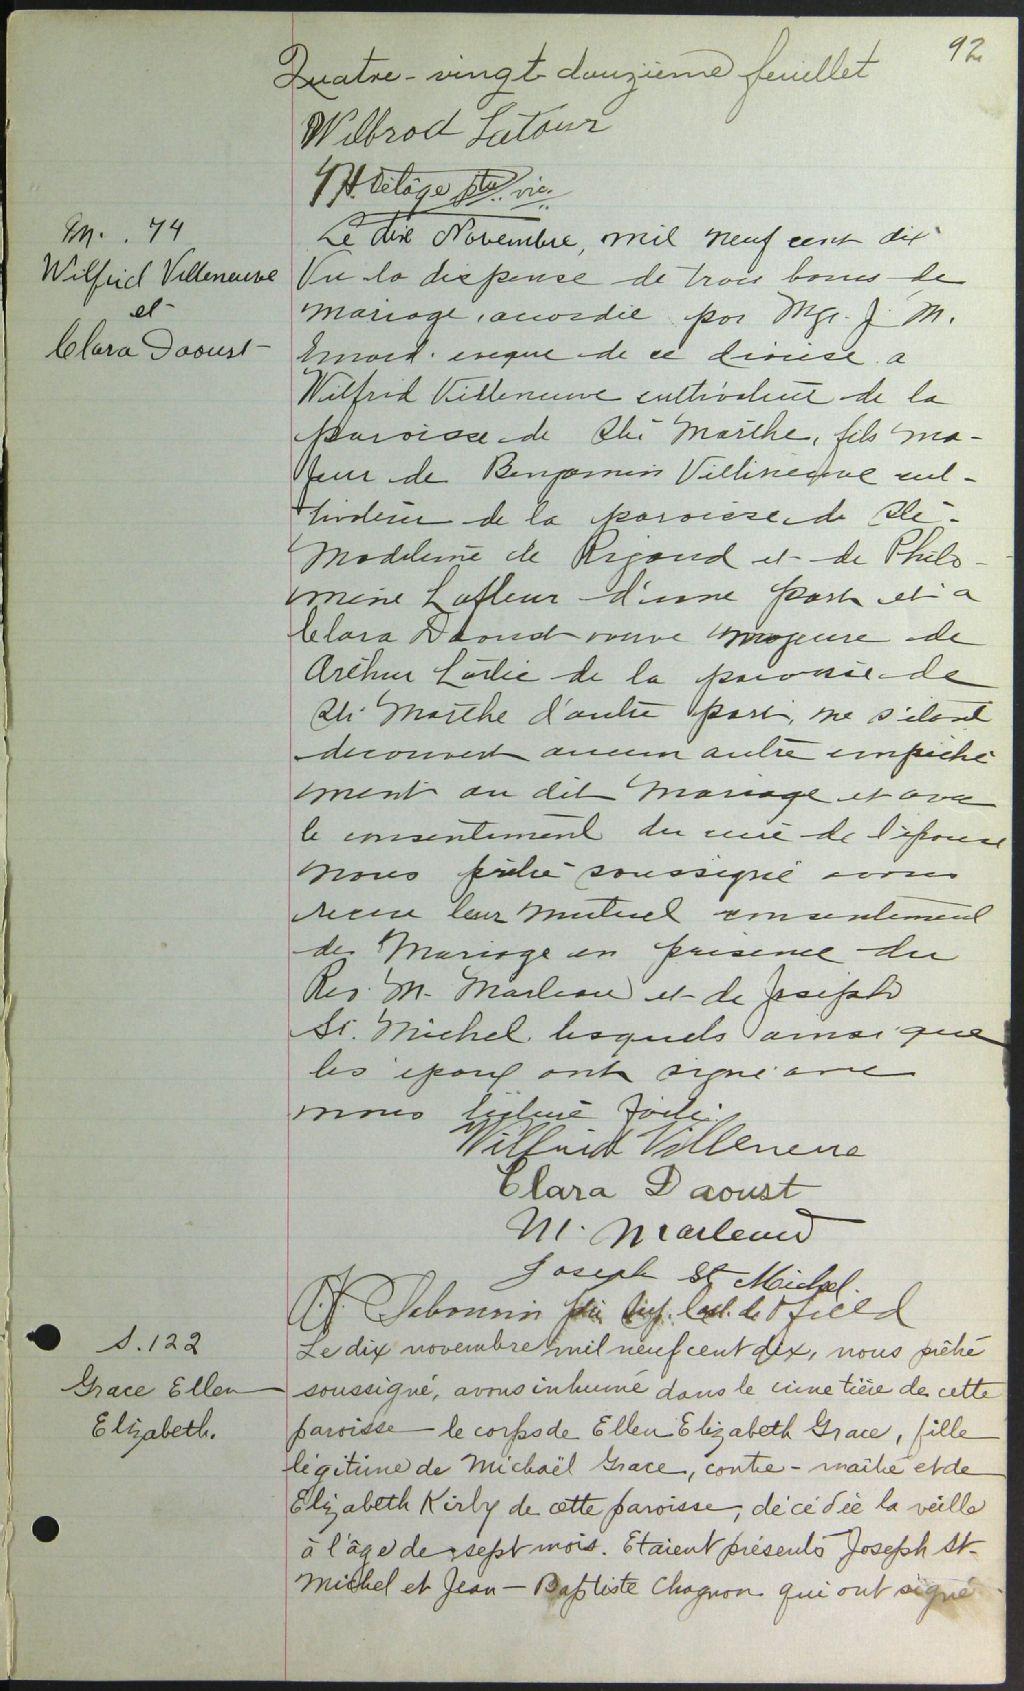 92
Quatre-vingt douzième feuillet
Wilbrod Latour
H. Delâge ptre vic.
M. . 74
Wilfrid Villeneuve
et
Clara Daoust
Le dix Novembre, mil neuf cent dix
Vu la dispense de trois bans de
mariage, accordée par Mgr. J. M.
Emard. eveque de ce diocèse a
Wilfrid Villeneuve cultivateur de la
paroisse de Ste Marthe, fils ma-
jeur de Benjamin Villeneuve cul-
tivateur de la paroisse de Ste-
Madeleine de Rigaud et de Philo-
mene Lafleur d'une part et a
Clara Daoust veuve majeure de
Arthur Lartie de la paroisse de
Ste Marthe d'autre part, ne s'étant
decouvert aucun autre empêche
ment au dit Mariage et avec
le consentement du curé de l'épouse
nous prêtre soussigné avons
recu leur mutuel consentement
de Mariage en présence du
Rev. M. Marleau et de Joseph
St. Michel lesquels ainsi que
les époux ont signé avec
nous lecture faite.
Wilfrid Villeneuve
Clara Daoust
M. Marleau
Joseph St Michel.
Sabourin ptre de Vfield
S. 122
Grace Ellen
Elizabeth.
Le dix novembre mil neuf cent dix, nous prêtre
soussigné, avons inhumé dans le cimetière de cette
paroisse le corps de Ellen Elizabeth Grace, fille
légitime de Michaël Grace, contre-maître et de
Elizabeth Kirby de cette paroisse, décédée la veille
à l'âge de sept mois. Etaient présents Joseph St-
Michel et Jean-Baptiste Chagnon qui ont signé